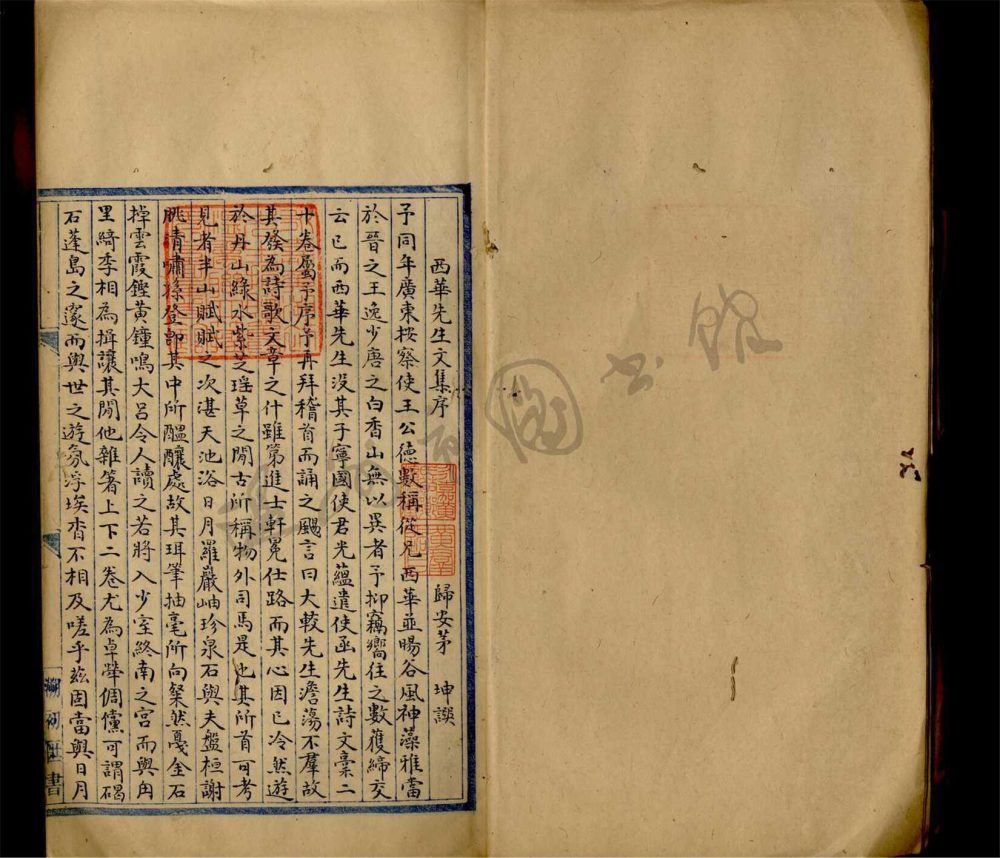 西華先生文集序
歸安茅 坤譔
予同年廣東按察使王公德數稱從兄西華並暘谷風神藻雅當
於晉之王逸少唐之白香山無以異者予抑竊嚮往之數獲締交
云已而西華先生沒其子寧國使君光蘊遣使函先生詩文稾二
十卷屬予序予再拜稽首而誦之颺言曰大較先生澹蕩不羣故
其發為詩歌文章之什雖第進士軒冕仕路而其心因已冷然遊
於丹山綠水紫芝瑤草之閒古所稱物外司馬是也其所首可考
見者半山賦賦之次湛天池浴日月羅巖岫珍泉石與夫盤桓謝
朓清嘯孫登卽其中所醞釀處故其珥筆抽毫所向粲然戛金石
掉雲霞鏗黃鐘鳴大呂令人讀之若將入少室終南之宮而與甪
里綺季相為揖讓其閒他雜箸上下二卷尤為卓犖倜儻可謂碣
石蓬島之邃而與世之遊氛浮埃杳不相及嗟乎茲固當與日月
圖書館